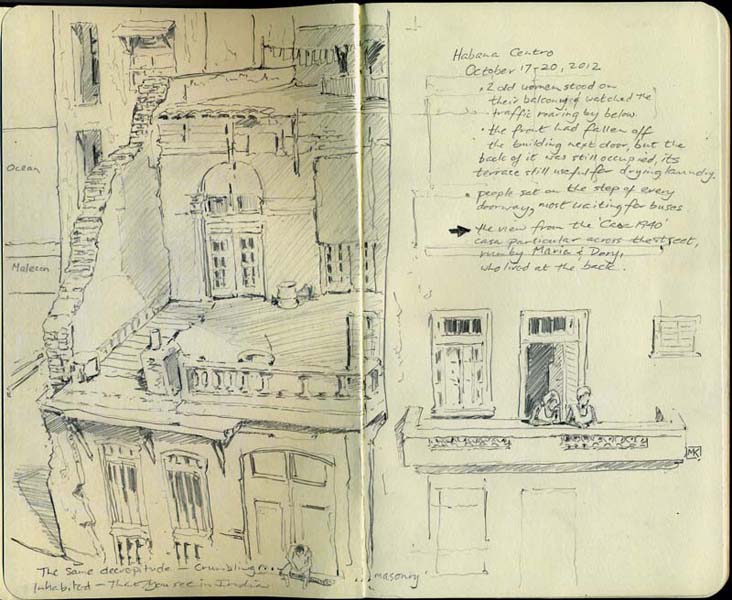 Ocean
Malecon
The same decrepitude – crumbling masonry
Inhabited – that you see in India
Habana Centro
October 17-20, 2012
• 2 old women stood on
their balcony & watched the
traffic roaring by below
• the front had fallen off
the building next door, but the
back of it was still occupied, its
terrace still useful for drying laundry.
• people sat on the step of every
doorway, most waiting for buses
→ the view from the 'Casa 1940'
casa particular across the street,
run by Maria & Dory,
who lived at the back..
MK